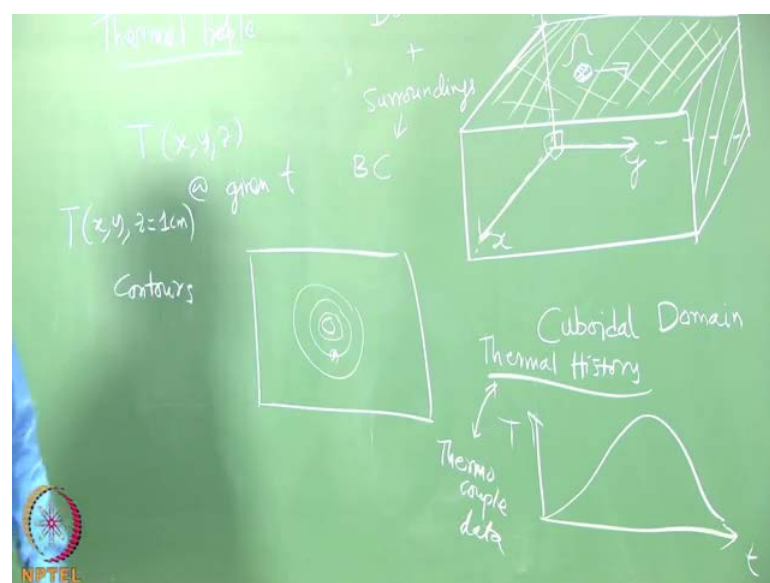 Thermal
+
Surroundings
BC
T(x,y,z)
@ given t
T(x,y,z=1cm)
Contours
y
x
Cuboidal Domain
Thermal History
Thermo
couple
data
T
t
NPTEL